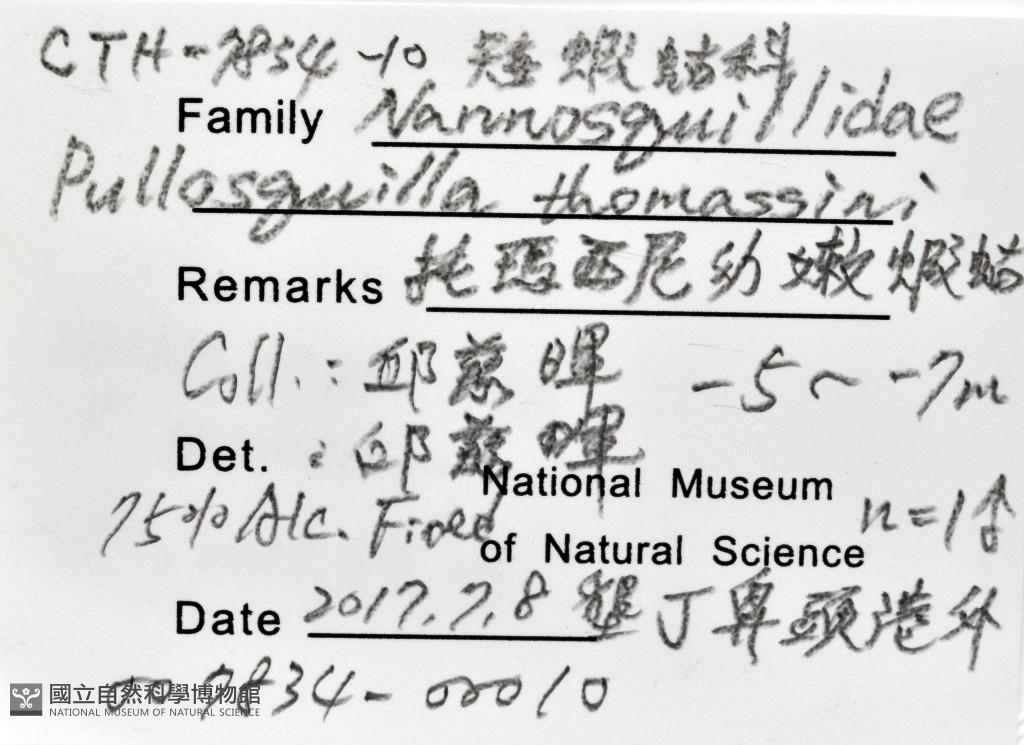 CTH-7834-10 矮蝦蛄科
Family Nannosquillidae
Pullosquilla thomassini
Remarks 托瑪西尼幼嫩蝦蛄
Coll.: 邱慈暉 -5~-7m
Det. : 邱慈暉
National Museum
75% Alc. Fixed n=1♂
of Natural Science
Date 2017.7.8 墾丁鼻頭港外
007834-00010
國立自然科學博物館
NATIONAL MUSEUM OF NATURAL SCIENCE